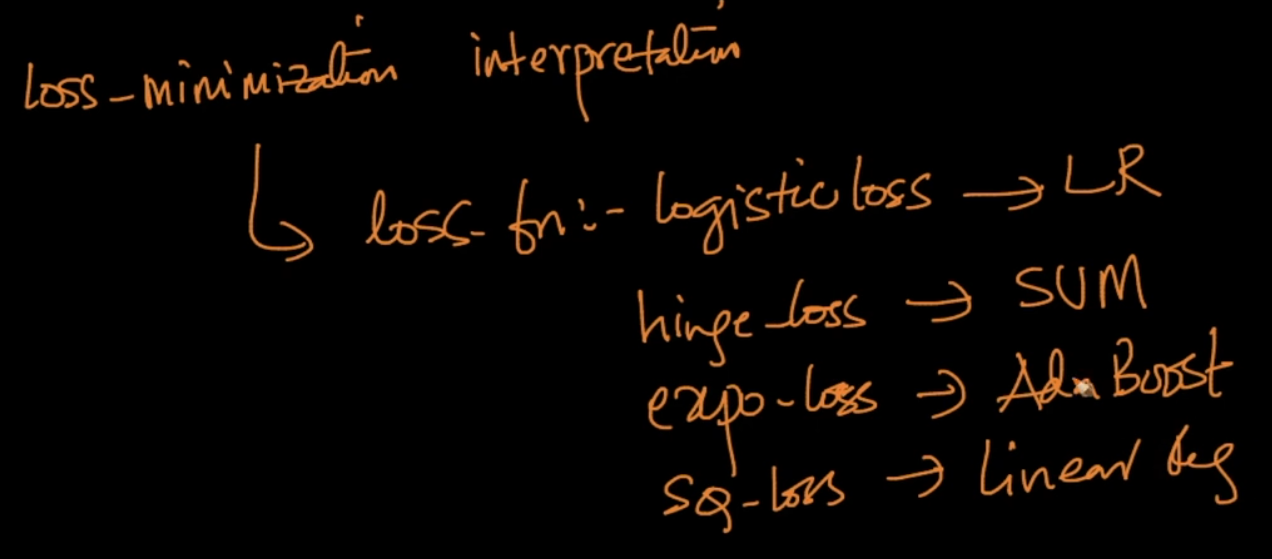 loss-minimization interpretation
↳ loss-fn:- logistic loss → LR
hinge-loss → SVM
expo-loss → AdaBoost
sq-loss → linear reg